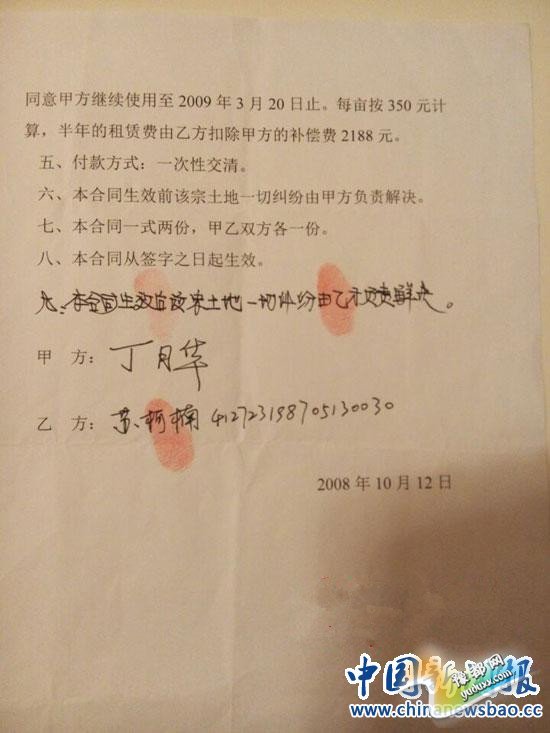 同意甲方继续使用至2009年3月20日止。每亩按350元计
算，半年的租赁费由乙方扣除甲方的补偿费2188元。
五、付款方式：一次性交清。
六、本合同生效前该宗土地一切纠纷由甲方负责解决。
七、本合同一式两份，甲乙双方各一份。
八、本合同从签字之日起生效。
九、本合同生效后该宗土地一切纠纷由乙方负责解决。
甲 方：丁月华
乙 方：苏柯楠 412723198705130030
2008年10月12日
豫都网
yuduxx.com
中国 报
www.chinanewsbao.cc